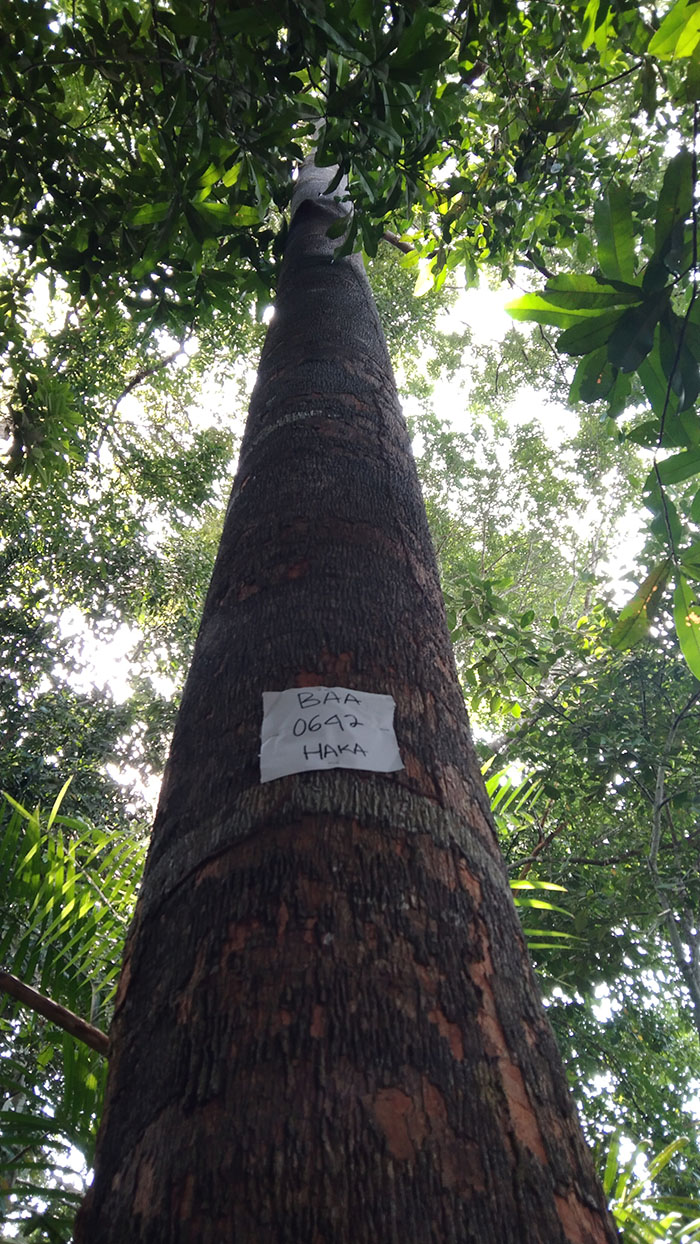 BAA
0642
HAKA